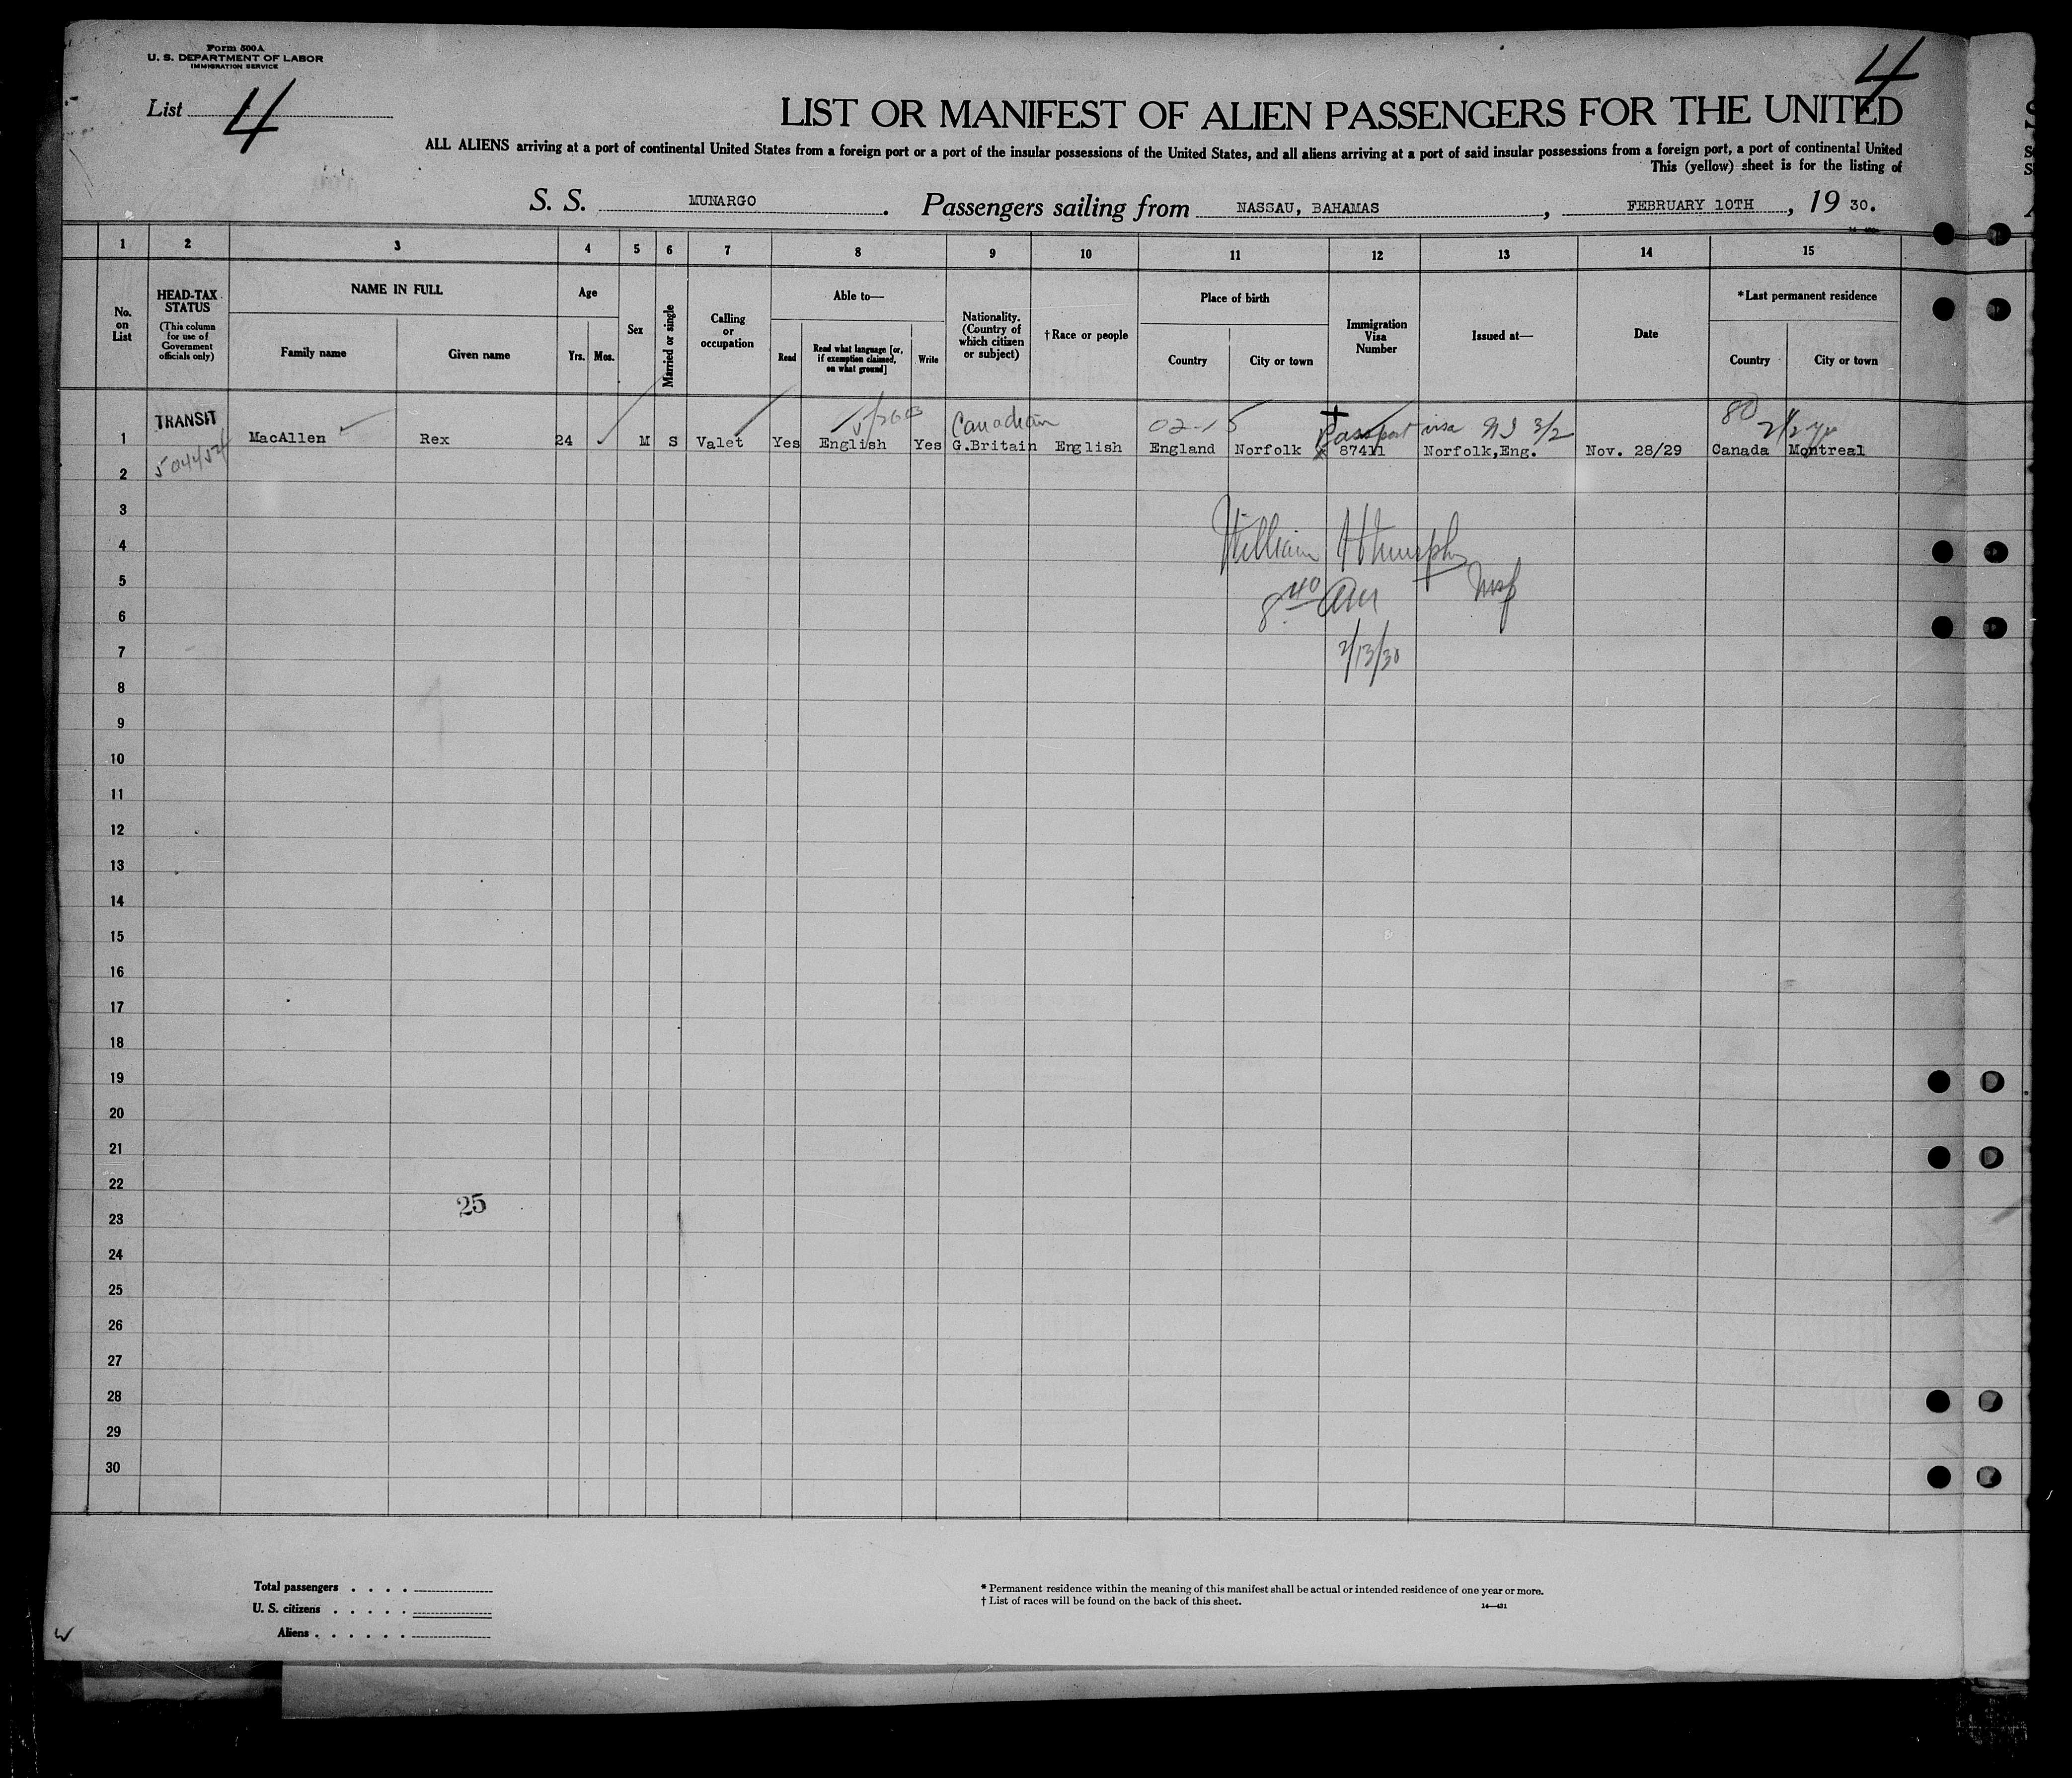 Form 500A
U. S. DEPARTMENT OF LABOR
IMMIGRATION SERVICE
List 4
4
LIST OR MANIFEST OF ALIEN PASSENGERS FOR THE UNITED
ALL ALIENS arriving at a port of continental United States from a foreign port or a port of the insular possessions of the United States, and all aliens arriving at a port of said insular possessions from a foreign port, a port of continental United
This (yellow) sheet is for the listing of
S. S. MUNARGO. Passengers sailing from NASSAU, BAHAMAS, FEBRUARY 10TH, 19 30.
1 2 3 4 5 6 7 8 9 10 11 12 13 14 15
No. on List
HEAD-TAX STATUS
(This column for use of Government officials only)
NAME IN FULL
Family name
Given name
Age
Yrs.
Mos.
Sex
Married or single
Calling or occupation
Able to—
Read
Read what language [or, if exemption claimed, on what ground]
Write
Nationality. (Country of which citizen or subject)
†Race or people
Place of birth
Country
City or town
Immigration Visa Number
Issued at—
Date
*Last permanent residence
Country
City or town
TRANSIT Canadian 02-15 Passport visa 3/2 80
1 MacAllen Rex 24 M S Valet Yes English Yes G.Britain English England Norfolk 87411 Norfolk,Eng. Nov. 28/29 Canada Montreal
2
3
4 William
5
6 8 40 am
7 2/13/30
8
9
10
11
12
13
14
15
16
17
18
19
20
21
22
25
23
24
25
26
27
28
29
30
Total passengers . . . .
U. S. citizens . . . . .
Aliens . . . . . .
* Permanent residence within the meaning of this manifest shall be actual or intended residence of one year or more.
† List of races will be found on the back of this sheet.
14—431